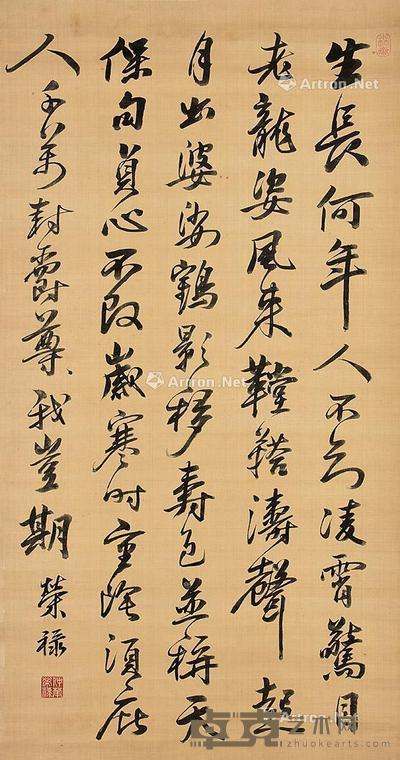 生長何年人不知凌霄驚見
老龍姿風來鞺鞳濤聲起
月出婆娑鶴影移壽色並稱天
保句貞心不改歲寒時重陰須庇
人千萬封爵尊我豈期
榮祿
Artron.Net
Artron.Net
Artron.Net
Artron.Net
zhuokearts.com